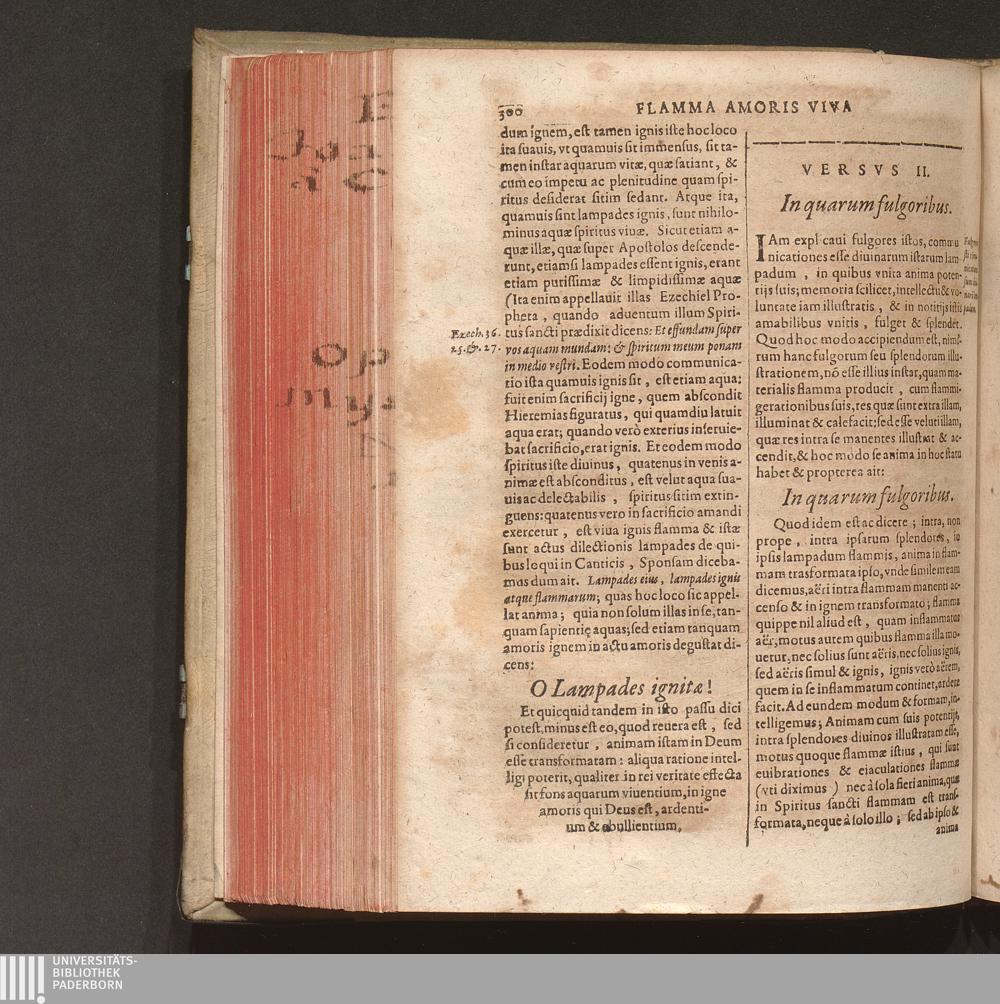 300
FLAMMA AMORIS VIVA
dum ignem, est tamen ignis iste hoc loco
ita suauis, vt quamuis sit immẽsus, sit ta-
men instar aquarum vitæ, quæ satiant, &
cum eo impetu ac plenitudine quam spi-
ritus desiderat sitim sedant. Atque ita,
quamuis sint lampades ignis, sunt nihilo-
minus aquæ spiritus viuæ. Sicut etiam a-
quæ illæ, quæ super Apostolos descende-
runt, etiamsi lampades essent ignis, erant
etiam purissimæ & limpidissimæ aquæ
(Ita enim appellauit illas Ezechiel Pro-
pheta, quando aduentum illum Spiri-
Ezech. 36.
25. & 27.
tus sancti prædixit dicens: Et effundam super
vos aquam mundam: & spiritum meum ponam
in medio vestri. Eodem modo communica-
tio ista quamuis ignis sit, est etiam aqua:
fuit enim sacrificij igne, quem abscondit
Hieremias figuratus, qui quamdiu latuit
aqua erat; quando verò exterius inseruie-
bat sacrificio, erat ignis. Et eodem modo
spiritus iste diuinus, quatenus in venis a-
nimæ est absconditus, est velut aqua sua-
uis ac delectabilis, spiritus sitim extin-
guens: quatenus vero in sacrificio amandi
exercetur, est viua ignis flamma & istæ
sunt actus dilectionis lampades de qui-
bus loqui in Canticis, Sponsam diceba-
mus dum ait. Lampades eius, lampades ignis
atque flammarum; quas hoc loco sic appel-
lat anima; quia non solum illas in se, tan-
quam sapientię aquas; sed etiam tanquam
amoris ignem in actu amoris degustat di-
cens:
O Lampades ignitæ!
Et quicquid tandem in isto passu dici
potest, minus est eo, quod reuera est, sed
si consideretur, animam istam in Deum
esse transformatam: aliqua ratione intel-
ligi poterit, qualiter in rei veritate effecta
sit fons aquarum viuentium, in igne
amoris qui Deus est, ardenti-
um & ebullientium.
VERSVS II.
In quarum fulgoribus.
IAm explicaui fulgores istos, commu
nicationes esse diuinarum istarum lam
padum, in quibus vnita anima poten-
tijs suis; memoria scilicet, intellectu & vo-
luntate iam illustratis, & in notitijs istis
amabilibus vnitis, fulget & splendet.
Quod hoc modo accipiendum est, nimi-
rum hanc fulgorum seu splendorum illu-
strationem, nõ esse illius instar, quam ma-
terialis flamma producit, cum flammi-
gerationibus suis, res quæ sunt extra illam,
illuminat & calefacit; sed esse veluti illam,
quæ res intra se manentes illustrat & ac-
cendit, & hoc modo se anima in hoc statu
habet & propterea ait:
In quarum fulgoribus.
Quod idem est ac dicere; intra, non
prope, intra ipsarum splendores, in
ipsis lampadum flammis, anima in flam-
mam trasformata ipso, vnde similem eam
dicemus, aëri intra flammam manenti ac-
censo & in ignem transformato; flamma
quippe nil aliud est, quam inflammatus
aër, motus autem quibus flamma illa mo-
uetur, nec solius sunt aëris, nec solius ignis,
sed aëris simul & ignis, ignis verò aërem,
quem in se inflammatum continet, ardere
facit. Ad eundem modum & formam, in-
telligemus; Animam cum suis potentijs,
intra splendores diuinos illustratam esse,
motus quoque flammæ istius, qui sunt
euibrationes & eiaculationes flammæ
(vti diximus) nec à sola fieri anima, quæ
in Spiritus sancti flammam est trans-
formata, neque à solo illo; sed ab ipso &
anima
UNIVERSITÄTS-
BIBLIOTHEK
PADERBORN